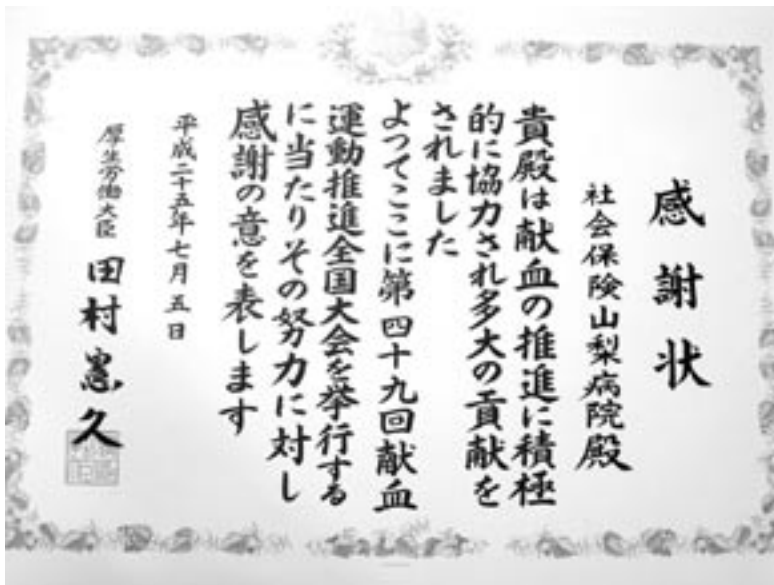 感謝状
社会保険山梨病院殿
貴殿は献血の推進に積極
的に協力され多大の貢献を
されました
よってここに第四十九回献血
運動推進全国大会を挙行する
に当たりその努力に対し
感謝の意を表します
平成二十五年七月五日
厚生労働大臣 田村憲久